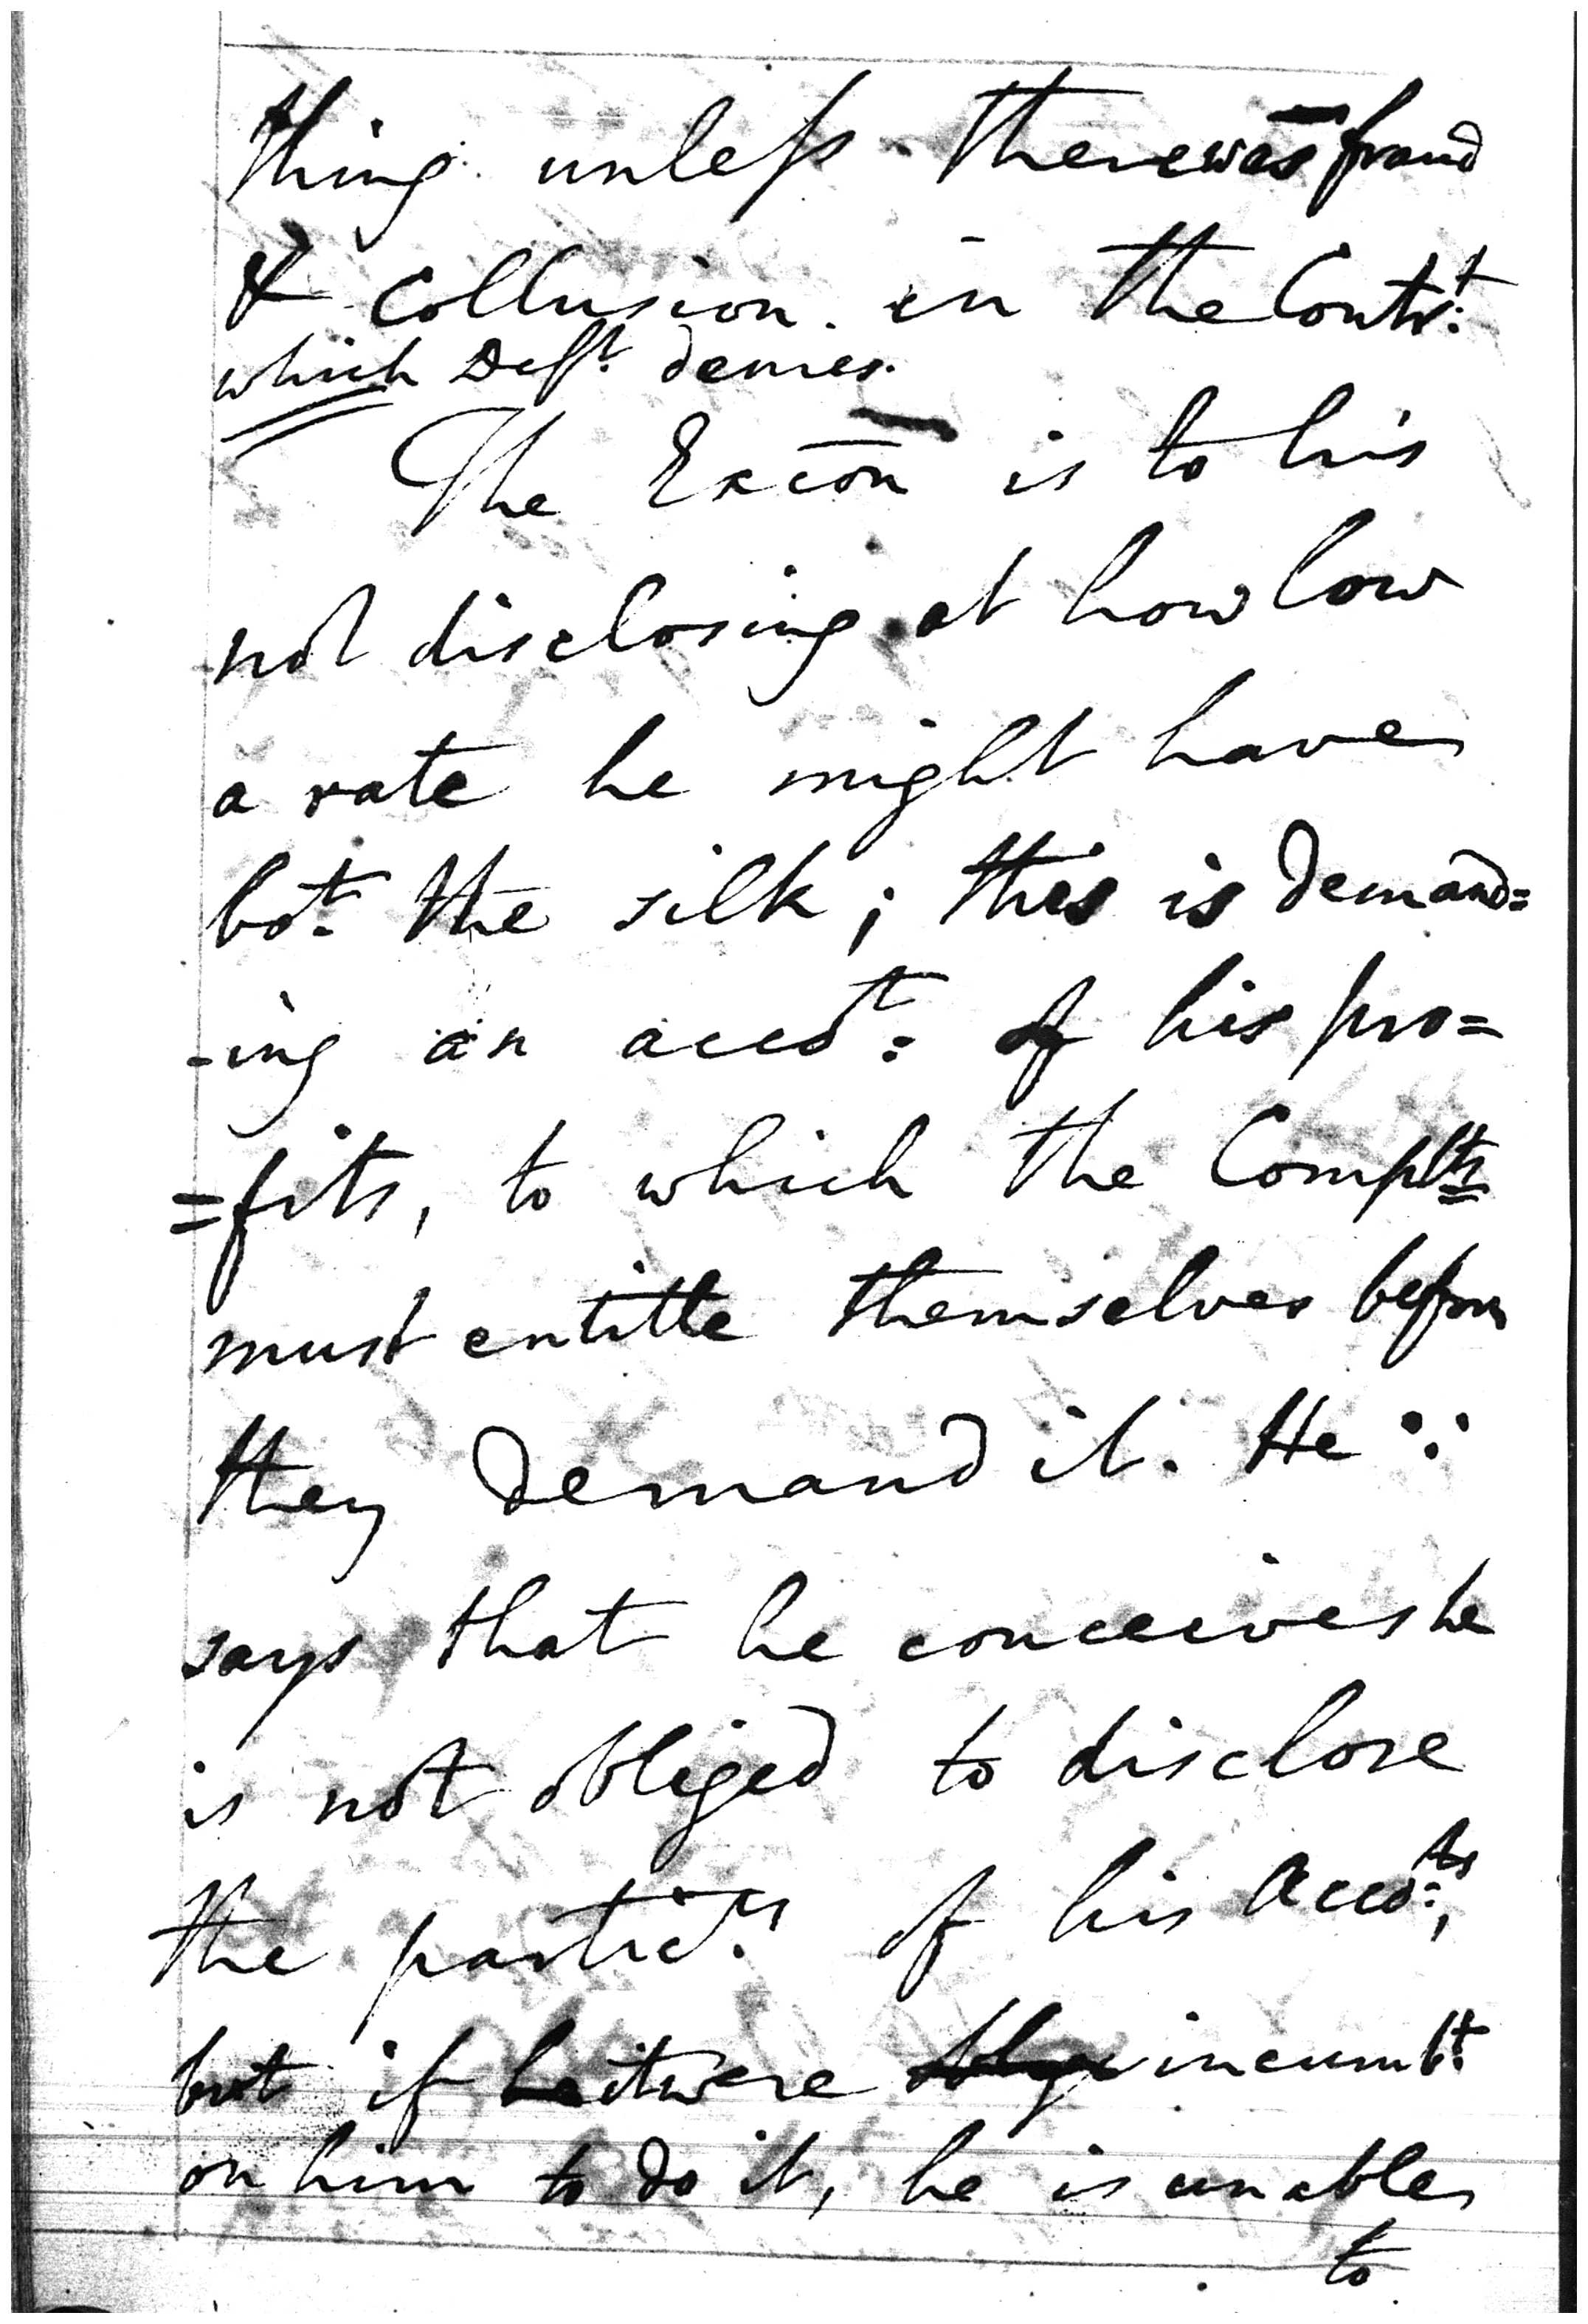 thing unless there was fraud
& Collusion in the Contr:t
which Deft. denies.
The Excōn is to his
not disclosing at how low
a rate he might have
bot. the silk; this is demand=
-ing an accot: of his pro=
=fits, to which the Complts
must entitle themselves before
they demand it. He
says that he conceives he
is not obliged to disclose
the partic:rs of his Acco:ts,
but if he it were oblige incumb:t
on him to do it, he is unable
to